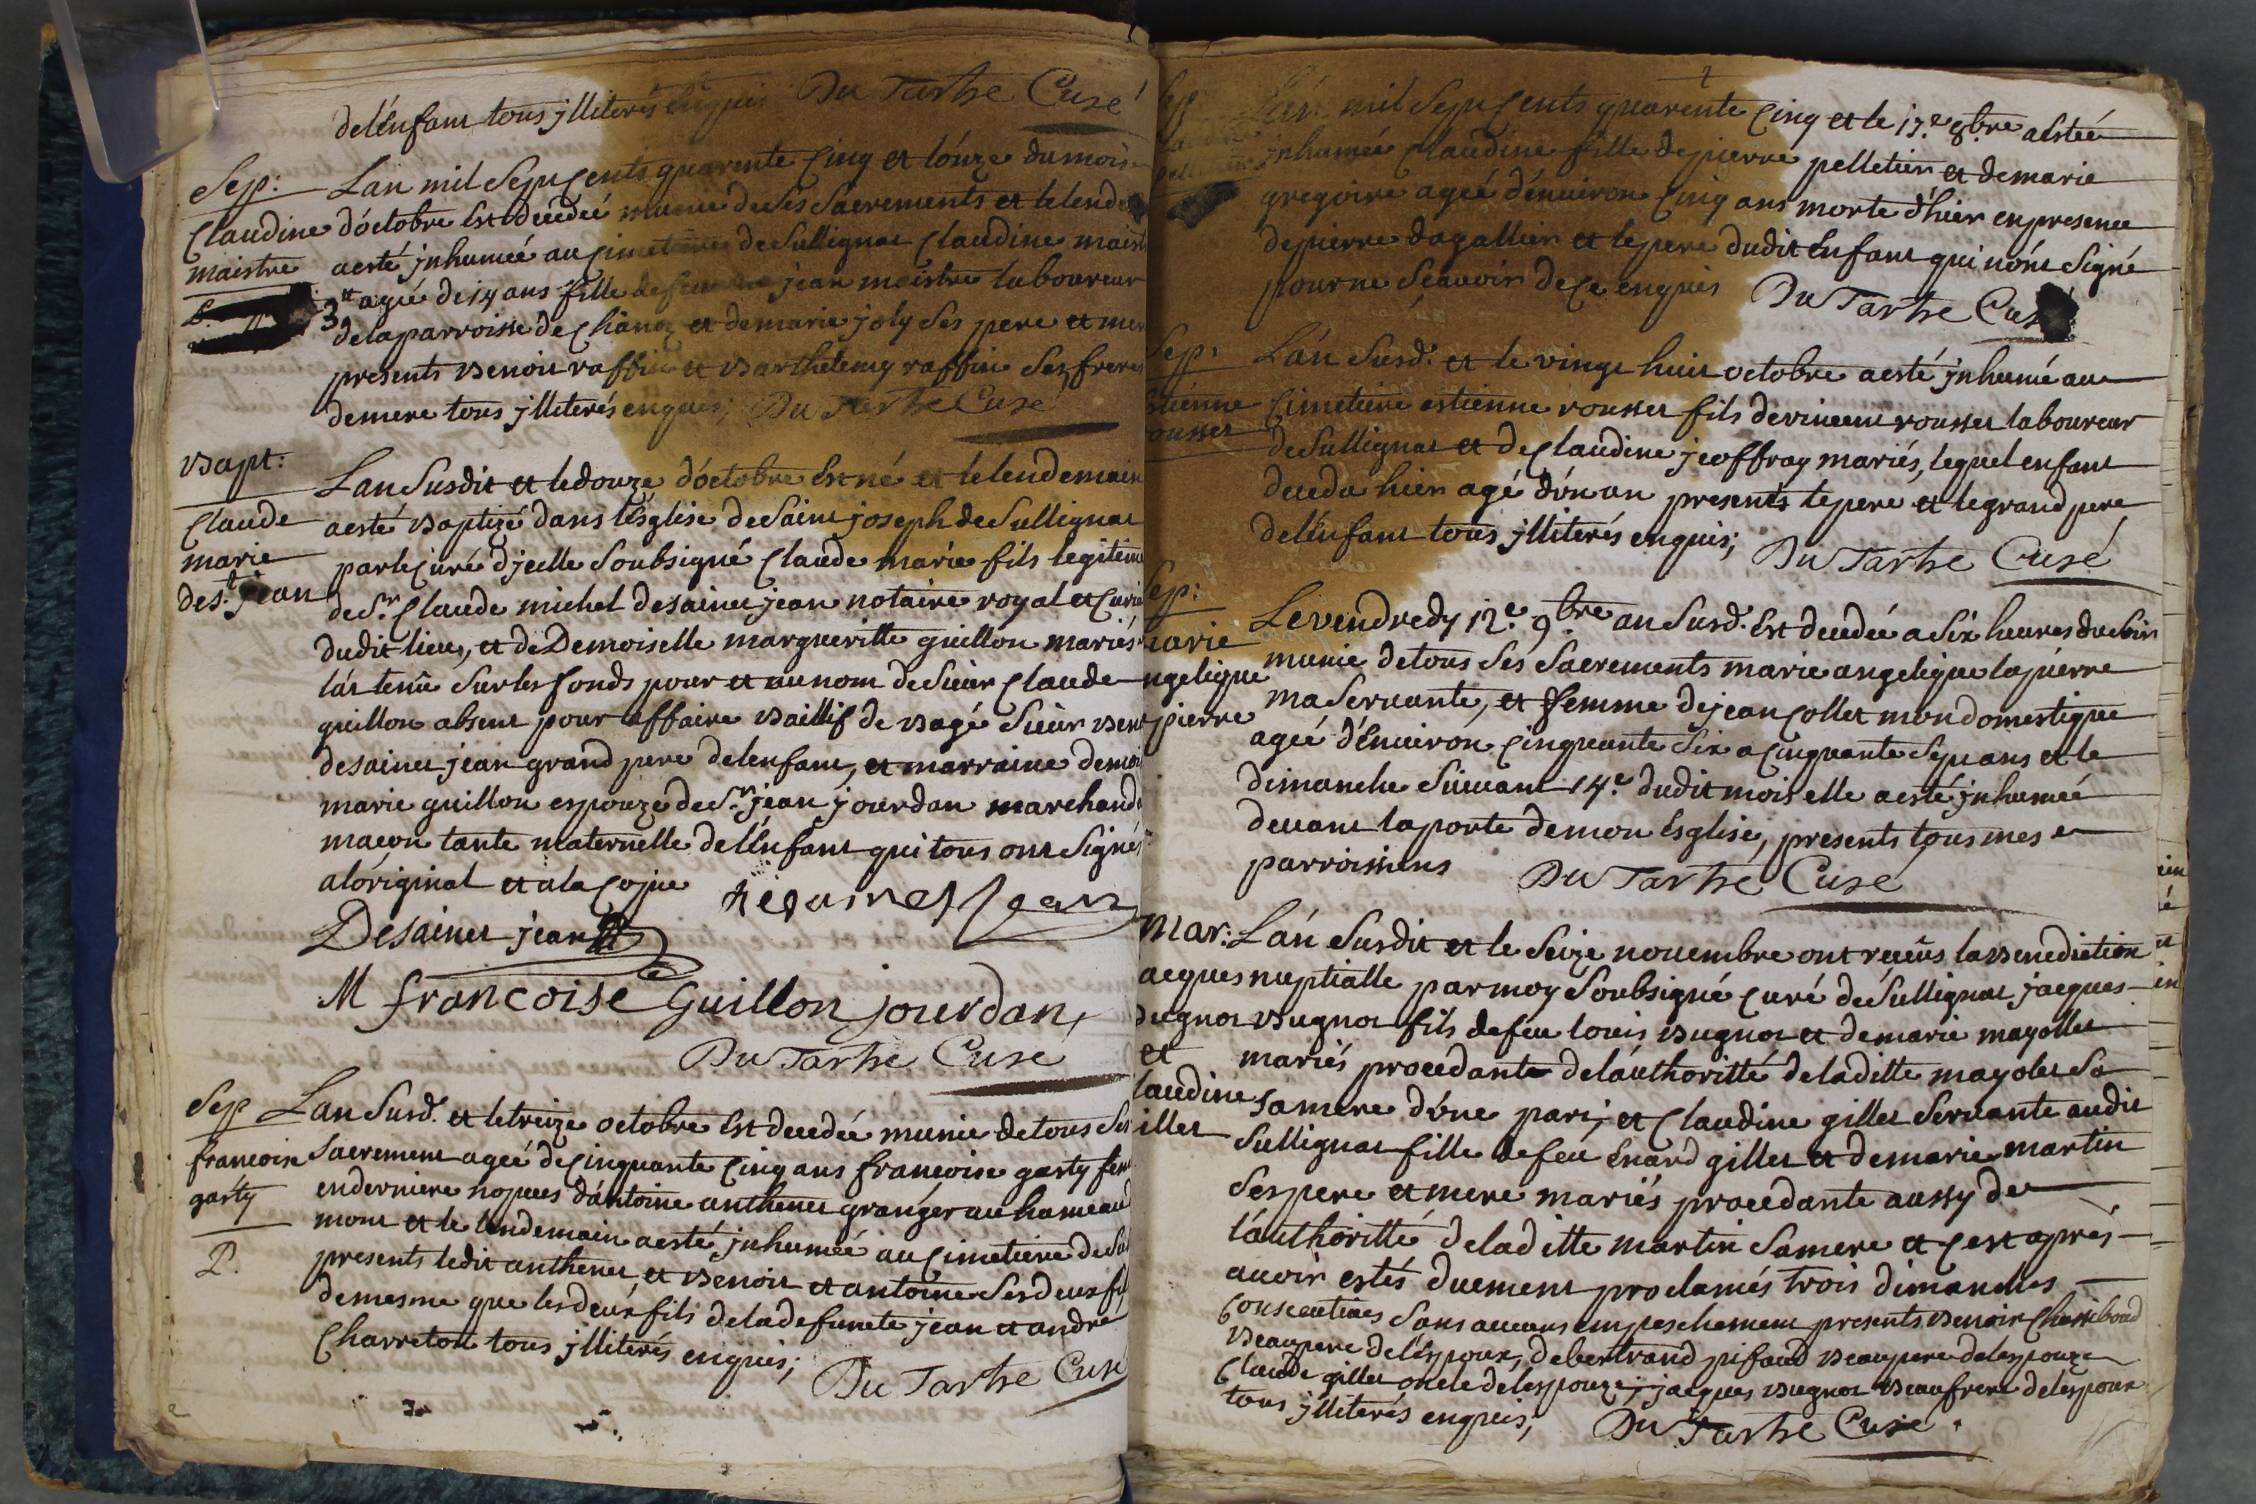 delénfant tous jlliterés enquis Du Tartre Curé
Sep: Lan mil Sept Cents quarente Cinq et lónze du mois
Claudine dóctobre Est decedeé munie de Ses Sacrements et le lende
maistre aesté jnhumeé au Cimetiere de Sullignat Claudine maistr
agée de 14 ans fille de feu jean maistre laboureur
de la parroisse de Chanoz et demarie joly Ses pere et mer
presents Benoit raffin et Barthelemy raffin Ses freres
demere tous jlliterés enquis; Du Tartre Curé
Bapt: Lan Susdit et le douze dóctobre Est né et le lendemain
Claude aesté Baptizé dans lésglise de Saint joseph de Sullignat
marie par le Curé djcelle Soubsigné Claude marie fils legitime
de St. jean de Sr. Claude michel desainct jean notaire royal et Curia
dudit lieu, et de Demoiselle margueritte guillon mariés
lát tenû Sur les fonds pour et au nom de Sieur Claude
guillon absent pour affaire Baillif de Bagé Sieur Ben
desainct jean grand pere delenfant, et marraine demoi
marie guillon espouze de Sr. jean jourdan marchand
macon tante maternelle delénfant qui tous ont Signés
alóriginal et a la Copie
Desainct jean
M francoise Guillon jourdan
Du Tartre Curé
Sep Lan Susd. et le treize octobre Est decedée munie de tous Ses
francoise Sacrement ageé de Cinquante Cinq ans francoise gasty fem
gasty en derniere nopces dántoine anthenet granger au hameau
mont et le lendemain aesté jnhumeé au Cimetiere de Sul
P. presents ledit anthenet, et Benoit et antoine Ses deux fi
demesme que les deux fils de la defuncte jean et andré
Charreton tous jlliterés enquis; Du Tartre Curé
Lán mil Sept Cents quarente Cinq et le 17.e 8bre aestée
jnhumeé Claudine fille de pierre pelletier et de marie
gregoire ageé dénuiron Cinq ans morte d'hier en presence
de pierre dagallier et le pere dudit Enfant qui nónt Signé
pour ne Scauoir de Ce enquis Du Tartre Curé
Sep: Lán Susd. et le vingt huit octobre aesté jnhumé au
Estienne Cimetiere estienne rousset fils de vincent rousset laboureur
rousset de Sullignat et de Claudine jeoffray mariés, lequel enfant
deceda hier agé dún an presents le pere et le grand pere
delénfant tous jlliterés enquis; Du Tartre Curé
Sep: Le vendredy 12.e 9bre an Susd. Est decedée a Six heures du Soir
marie munie de tous Ses Sacrements marie angelique lapierre
angelique ma Seruante, et femme de jean Collet mon domestique
pierre ageé d'énuiron Cinquante Six a Cinquante Sept ans et le
dimanche Suiuant 14.e dudit mois elle aesté jnhumeé
deuant la porte de mon Esglise, presents tous mes
parroissiens Du Tartre Curé
Mar: Lán Susdit et le Seize nouembre ont receûs la Benediction
jacques nuptialle par moy Soubsigné Curé de Sullignat jacques
Bugnot Bugnot fils de feu louis Bugnot et de marie mayollet
et mariés procédante delaúthoritté de laditte mayolet Sa
Claudine Samere dúne part; et Claudine gillet Seruante audit
gillet Sullignat fille de feu Enard gillet et de marie martin
Ses pere et mere mariés procedante aussy de
laúthoritté de laditte martin Samere et Cest aprés
auoir estés duement proclamés trois dimanches
Consecutiues Sans aucuns empeschement presents Benoit
Beaupere deléspoux, de bertrand pifaud Beaupere deléspouze
Claude gillet oncle de lespouze; jacques Bugnot Beaufrere de lespoux
tous jlliterés enquis; Du Tartre Curé